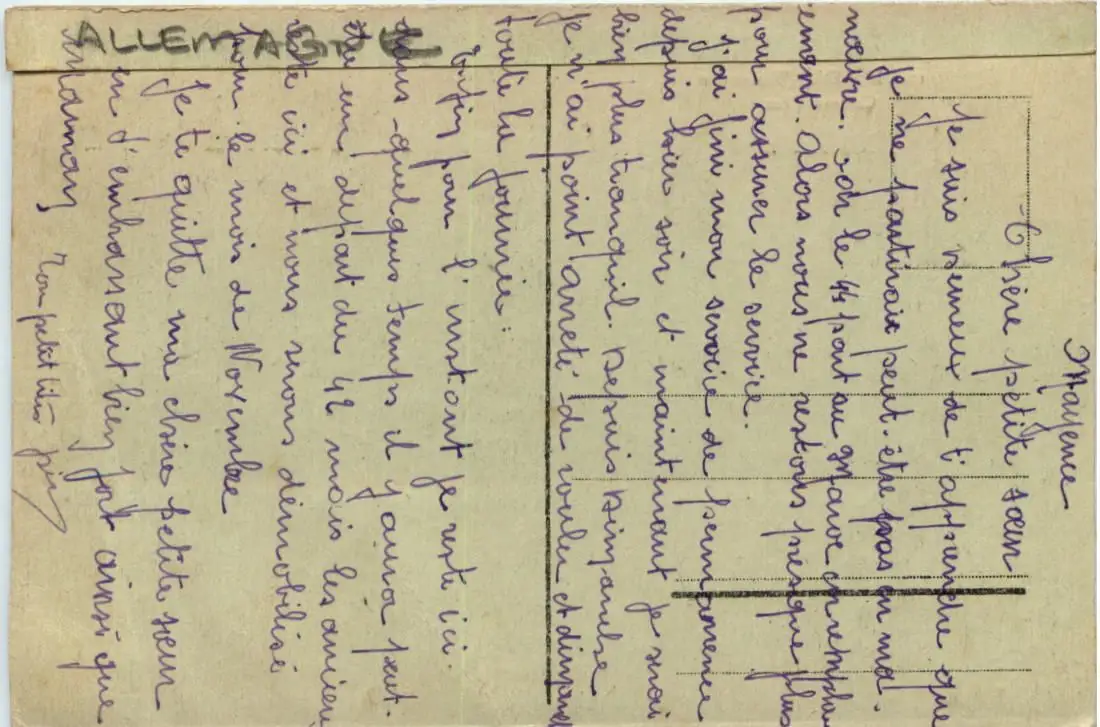 ALLEMAGNE
Mayence
Chère petite sœur
Je suis heureux de t'apprendre que
je ne partirais peut-être pas en ma-
nœuvre. le 44 part au
ement. Alors nous ne restons presque plus
pour assurer le service.
j'ai fini mon service de permanence
depuis hier soir et maintenant je serai
bien plus tranquil. Depuis Dimanche
je n'ai point arrêté de rouler et dimanche
toute la journée.
Enfin pour l'instant je reste ici.
Dans quelques temps il y aura peut-
être un départ du 42 mais les anciens
reste ici et nous serons démobilisé
pour le mois de Novembre
Je te quitte ma chère petite sœur
en t'embrassant bien fort ainsi que
maman,
Ton petit